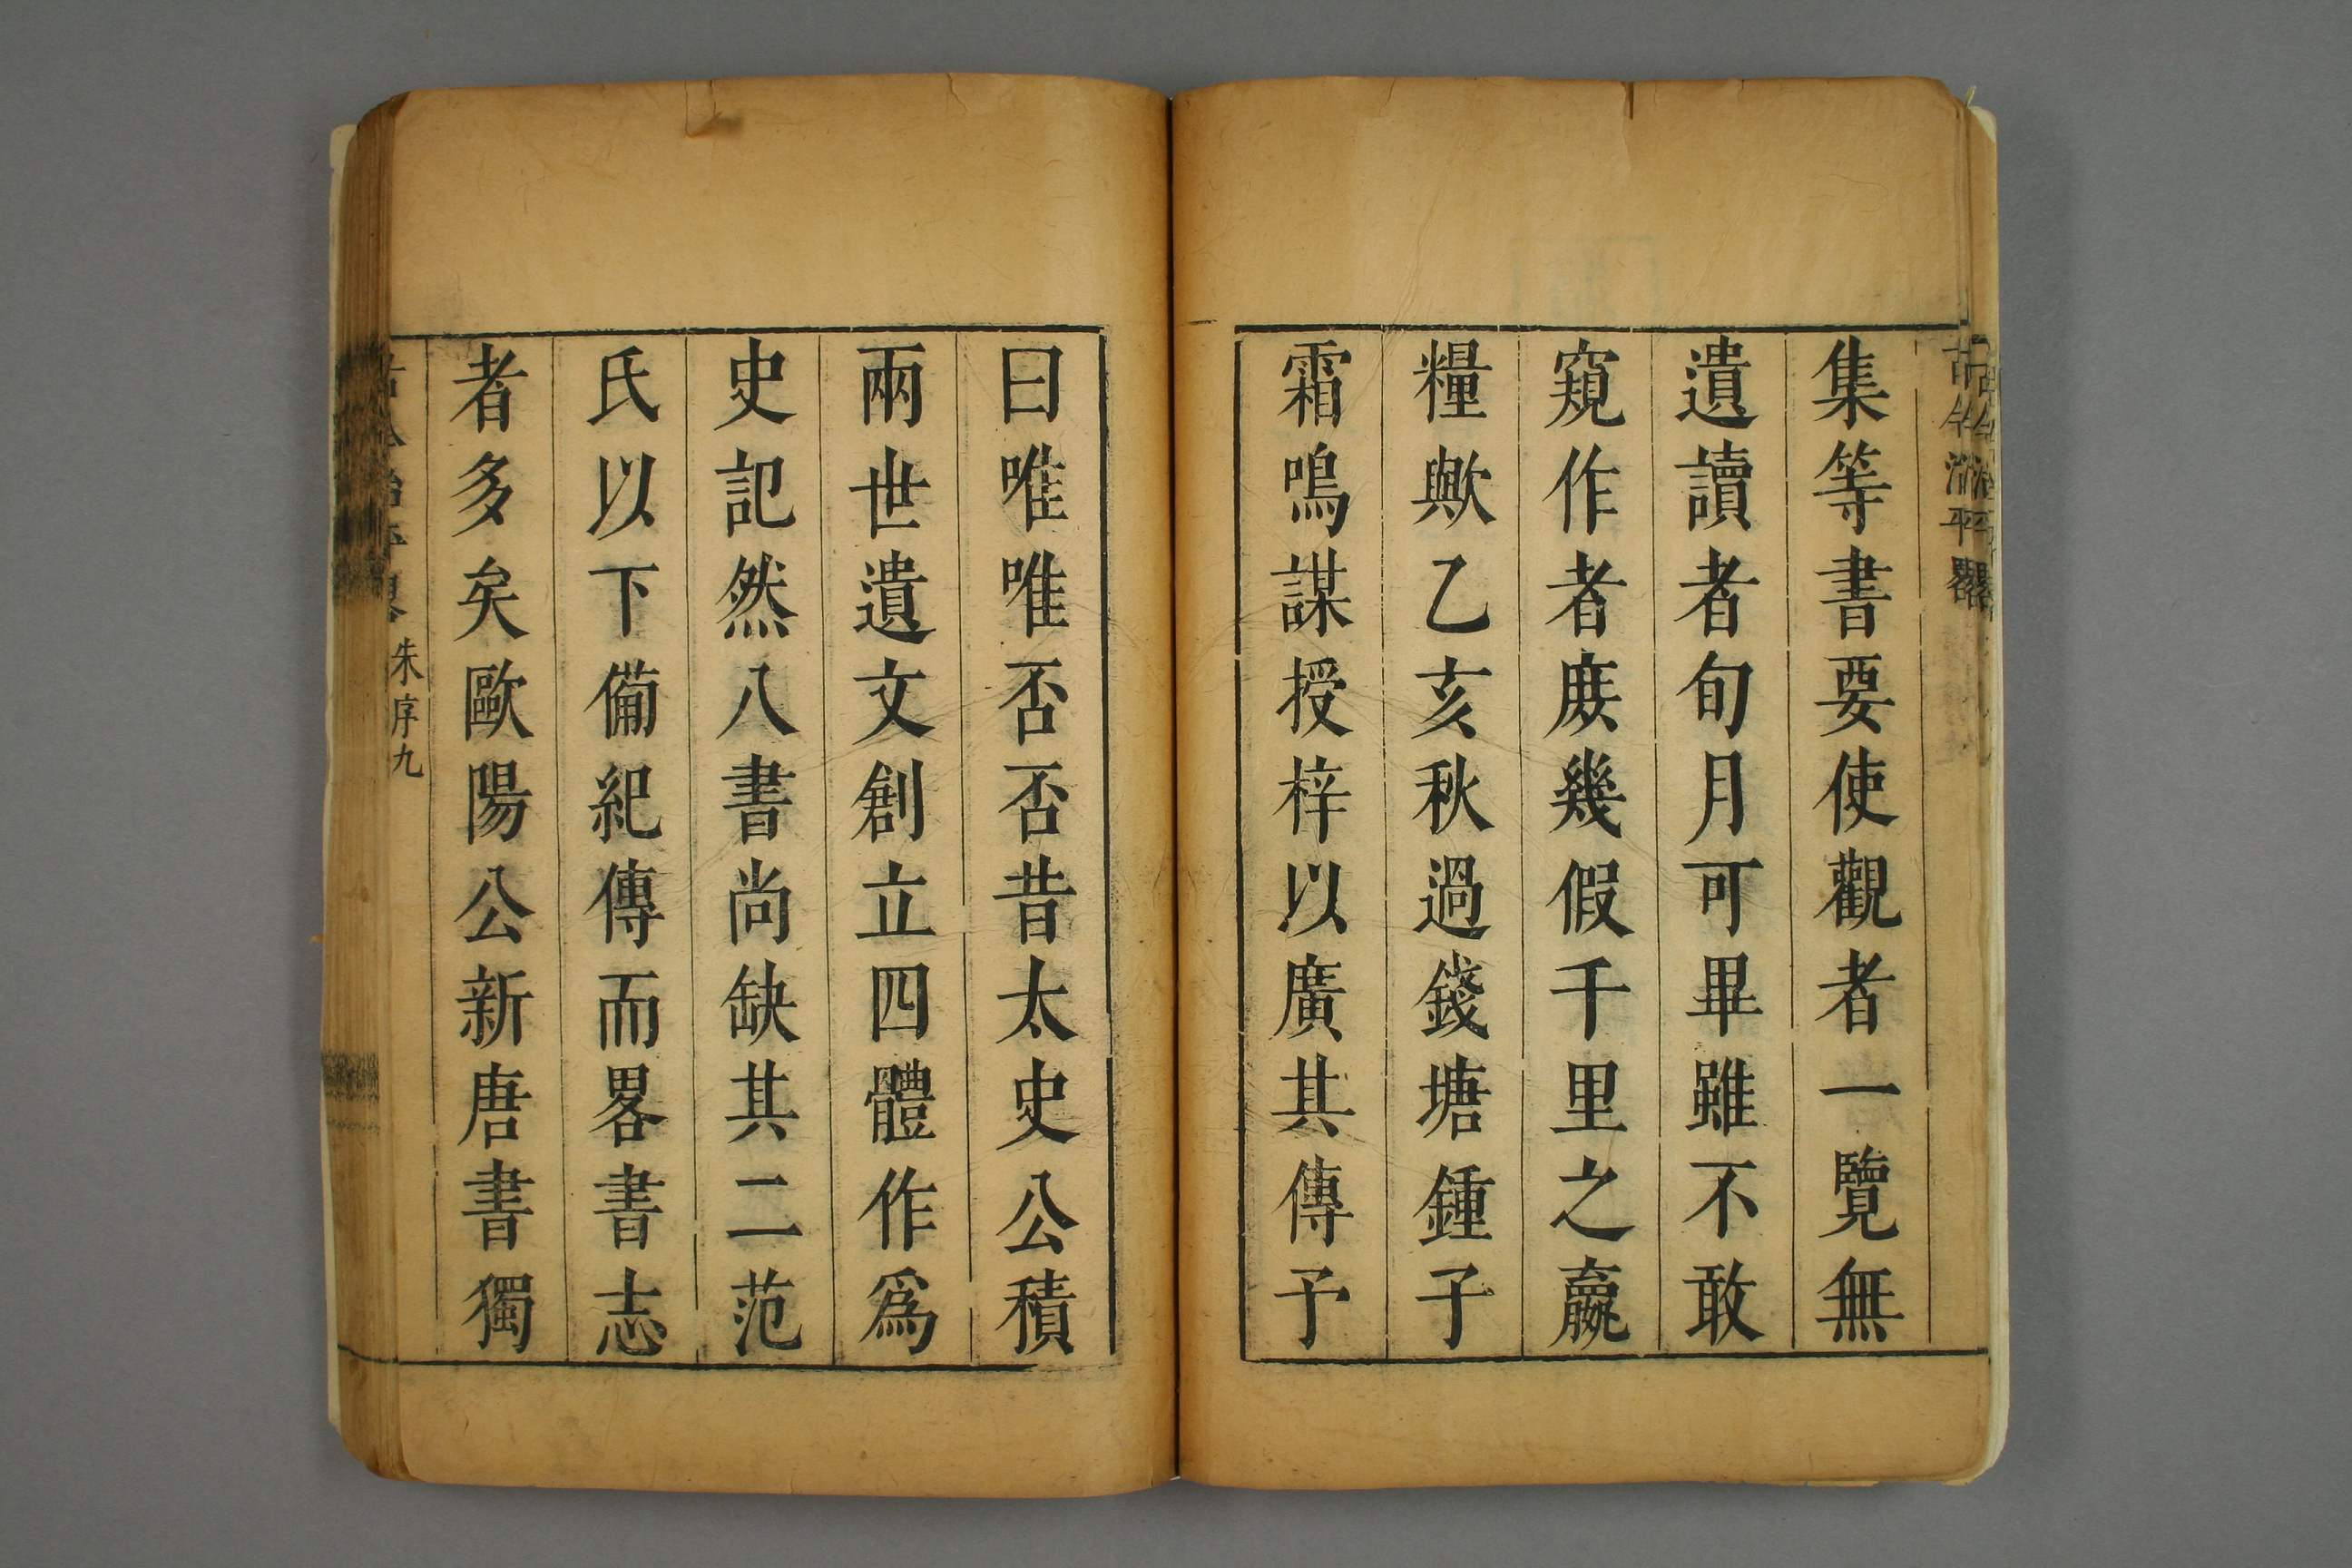 古今治平畧
集等書要使觀者一覽無
遺讀者旬月可畢雖不敢
窺作者庻幾假千里之羸
糧歟乙亥秋過錢塘鍾子
霜鳴謀授梓以廣其傳予
曰唯唯否否昔太史公積
兩世遺文創立四體作爲
史記然八書尚缺其二范
氏以下備紀傳而畧書志
者多矣歐陽公新唐書獨
古今治平畧 朱序九